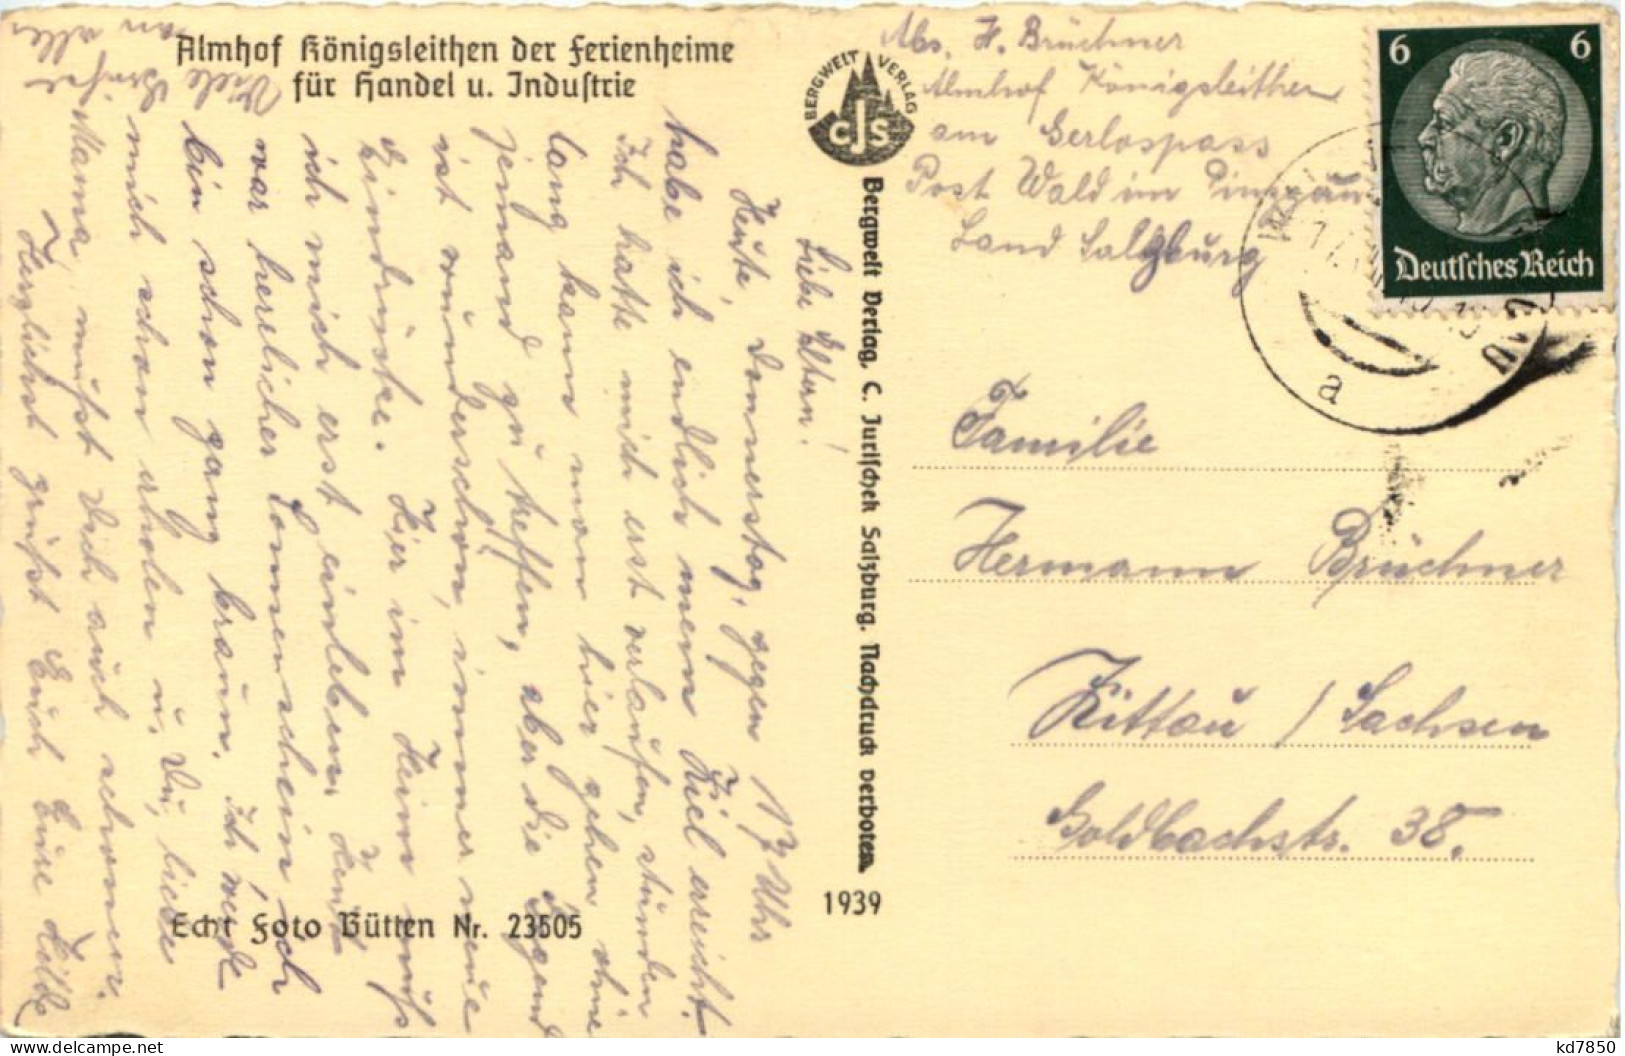 Almhof Königsleithen der Ferienheime
für Handel u. Industrie
BERGWELT VERLAG
CJS
Bergwelt Verlag, C. Jurischek Salzburg. Nachdruck verboten
1939
Echt Foto Bütten Nr. 23505
Abs. H. Brüchner
Almhof Königsleithen
am Gerlospass
Post Wald im Pinzgau
Land Salzburg
6 6
Deutsches Reich
a
Familie
Hermann Brüchner
Zittau / Sachsen
Goldbachstr. 38.
Liebe Eltern!
Heute, Donnerstag, gegen 17 Uhr
habe ich endlich mein Ziel erreicht.
Ich hatte mich erst verlaufen, stunden
lang kann man hier gehen, ohne
jemand zu treffen, aber die Gegend
ist wunderschön, immer neue
Eindrücke. Hier im Heim muß
ich mich erst einleben. Heute
war herrlicher Sonnenschein ich
bin schon ganz braun. Ich werde
mich schon erholen u. Du, liebe
Mama, mußt Dich auch schonen.
Herzlichst grüßt Euch Eure Hilde
Viele Grüße
an alle
kd7850